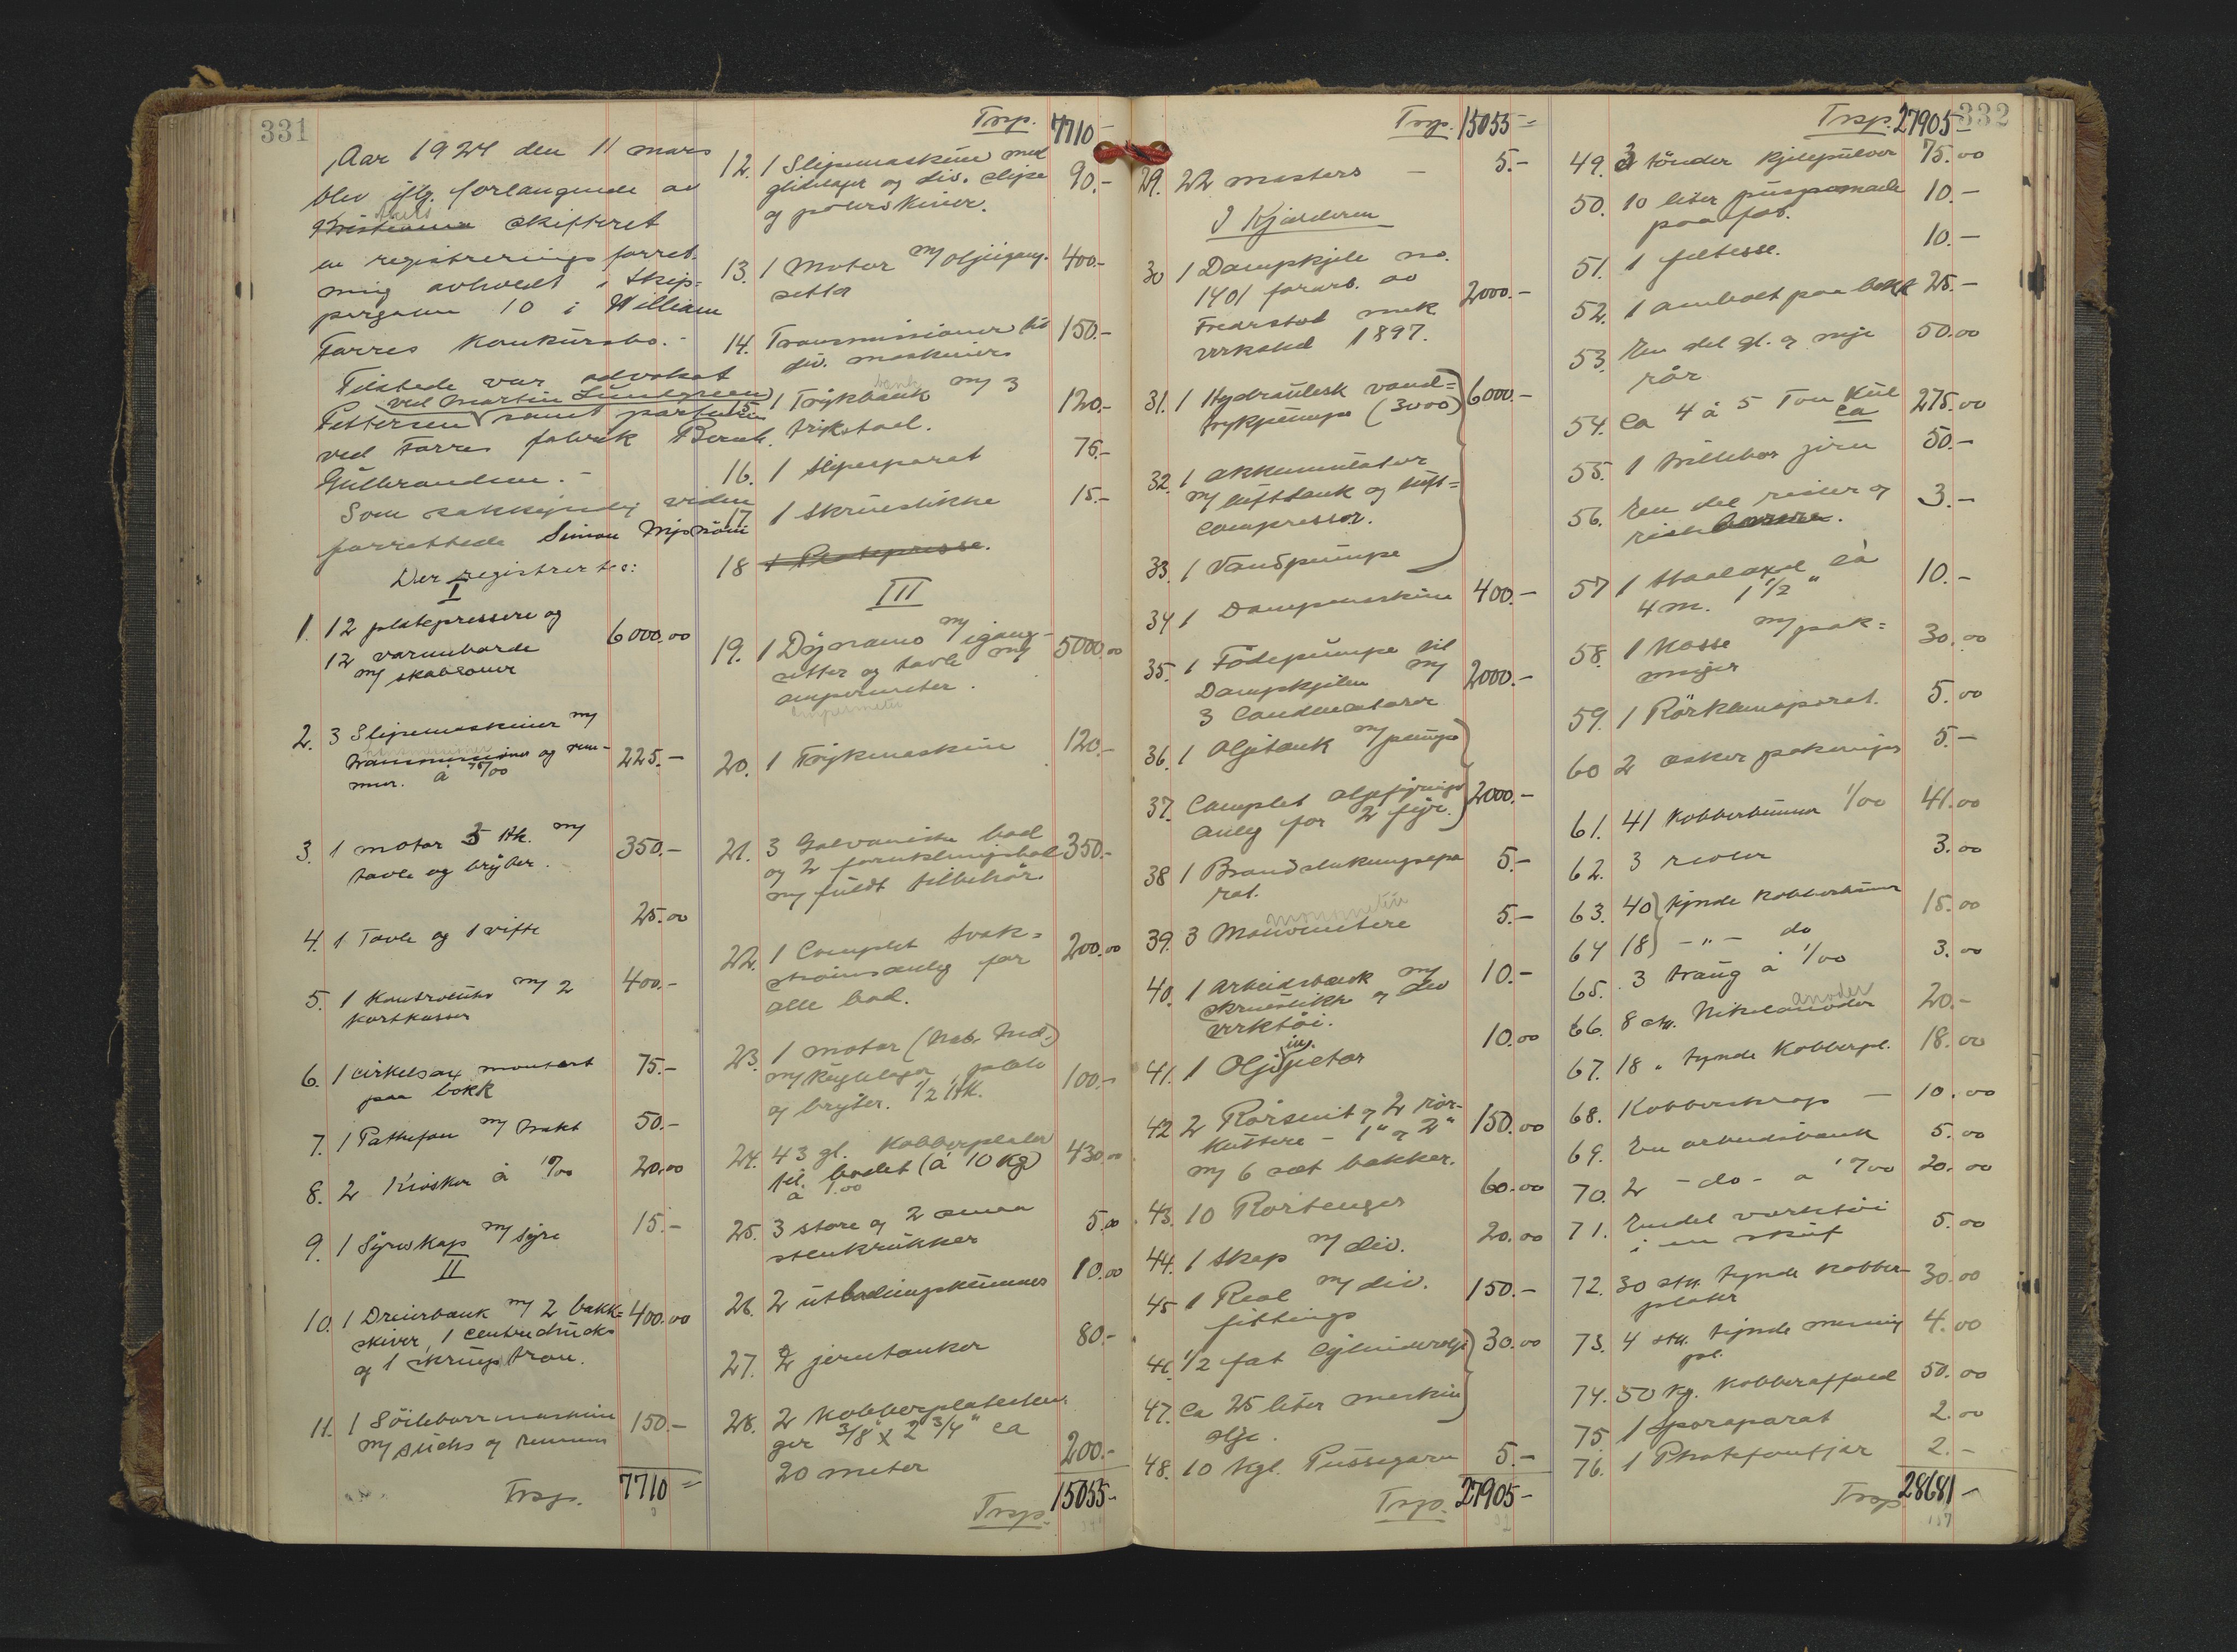 331
Aar 1924 den 11 mars
blev iflg. forlangende av
Aker
Kristiania skifteret
en registrerings forret-
ning avholdt i Skip-
pergaten 10 i William
Farres Konkursbo.-
Tilstede var advokat
ved Martin Lundgreen
Pettersen samt
ved Farres fabrik Bernh.
Gulbrandsen.
Som sakkyndig viden
forrettede Simon
Der registrertes:
I
1. 12 platepressere og
12 varmeborde
m/ skabloner 6000.00
2. 3 Slipemaskiner m/
transmissioner
transmissioner og rem-
mer. à 75/00 225.-
3. 1 motor 5 Hk. m/
tavle og bryter. 350.-
4. 1 Tavle og 1 vifte 25.00
5. 1 Kontrollur m/ 2
kortkasser 400.-
6. 1 cirkelsax montert
paa bokk 75.-
7. 1 Pathefon m/ trakt 50.-
8. 2 Kiosker à 10/00 20.00
9. 1 Syreskap m/ syre 15.-
II
10. 1 Dreierbank m/ 2 bakk=
skiver, 1 centrudruck
og 1 400.00
11. 1 Söileborrmaskine
m/ sticks og remmer 150.-
Trsp. 7710=
Trsp. 7710-
12. 1 Slipemaskine med
glidelager og div. slipe
og polerskiver. 90.-
13. 1 Motor m/ oljeigang-
setter 400.-
14. Transmissioner til
div. maskiner 150.-
bank
15. 1 Trykbank m/ 3
trykstael. 120.-
16. 1 Slipeaparat 75.-
17 1 Skruestikke 15.-
18 1 Platepresse.
III
19. 1 Dynamo m/ igang-
setter og tavle m/
amperemeter. 5000.00
Ampermeter
20. 1 Trykmaskine 120.-
21. 3 Galvaniske bad
og 2 forniklingsbad
m/ fuldt tilbehör. 350.-
22. 1 Complet svak=
strömsanleg for
alle bad. 200.00
23. 1 motor (Nat. Ind.)
m/ Kuglelager,
og bryter. 1/2 HK. 100.-
24. 43 gl. Kobberplater
til badet (à 10 Kg)
à 1.00 430.00
25. 3 store og 2 smaa
stenkrukker 5.00
26. 2 utbadingskummer 10.00
27. 2 jerntanker 80.-
28. 2 Kobberplatesten-
ger 3/8 x 2 3/4" ca
20 meter 200.-
Trsp. 15055-
Trsp. 15055=
29. 22 masters - 5.-
I Kjælderen
30 1 Dampkjele no.
1401 forarb. av
Fredrstad mek
verksted 1897. 2000.-
31. 1 Hydraulisk vand=
trykpumpe (3000) 6000.-
32. 1 akkumulator
m/ lufttank og luft=
compressor.
33. 1 Vandpumpe
34 1 Dampmaskine 400.-
35. 1 Fødepumpe til
Dampkjelen m/
3 Condensatorer 2000.-
36. 1 Oljetank m/ pumpe
37. Complet oljefyrings
anleg for 2 fyr. 2000.-
38 1 Brandslukningsapa
rat. 5.-
manometer
39. 3 Manometere 5.-
40. 1 arbeidsbænk m/
skruestikke og div
verktöi. 10.-
inj.
41. 1 Oljejector 10.00
42 2 Rörsnit og 2 rör-
kuttere - 1" og 2"
m/ 6 sæt bakker. 150.00
43. 10 Rörtenger 60.00
44. 1 Skap m/ div. 20.00
45 1 Reol m/ div.
fittings 150.-
46. 1/2 fat Cylinderolje 30.00
47. Ca 25 liter maskin
olje.
48. 10 kgl. Pussegarn 5.-
Trsp. 27905-
332
Trsp. 27905-
49. 3 tönder Kjelepulver 75.00
50. 10 liter pusspomade
paa fat. 10.-
51. 1 feltesse. 10.-
52. 1 ambolt paa bokk 25.-
53. En del gl. og nye
rör 50.00
54. Ca 4 à 5 Ton Kul
ca 275.00
55. 1 trillebor jern 50.-
56. En del rister og
3.-
57 1 Staalaxel ca
4 m. 1 1/2" 10.-
58. 1 Kasse m/ pak=
ninger 30.00
59. 1 Rörklemaparat. 5.00
60 2 æsker pakninger 5.-
61. 41 Kobberkummer 1/00 41.00
62. 3 reoler 3.00
63. 40 tynde Kobberkummer
64 18 - " - do 15.00
65. 3 traug à 1/00 3.00
anoder
66. 8 stk. Nikelanoder 20.-
67. 18 " tynde Kobberpl. 18.00
68. Kobberskrap - 10.00
69. En arbeidsbænk 5.00
70. 2 - do - à 10/00 20.00
71. Endel verktöi
i en skuf 5.00
72. 30 stk. tynde Kobber-
plater 30.00
73. 4 stk. tynde messing
pl. 4.00
74. 50 kg. Kobberaffald 50.00
75. 1 Sporaparat 2.00
76. 1 2.-
Trsp. 28681-